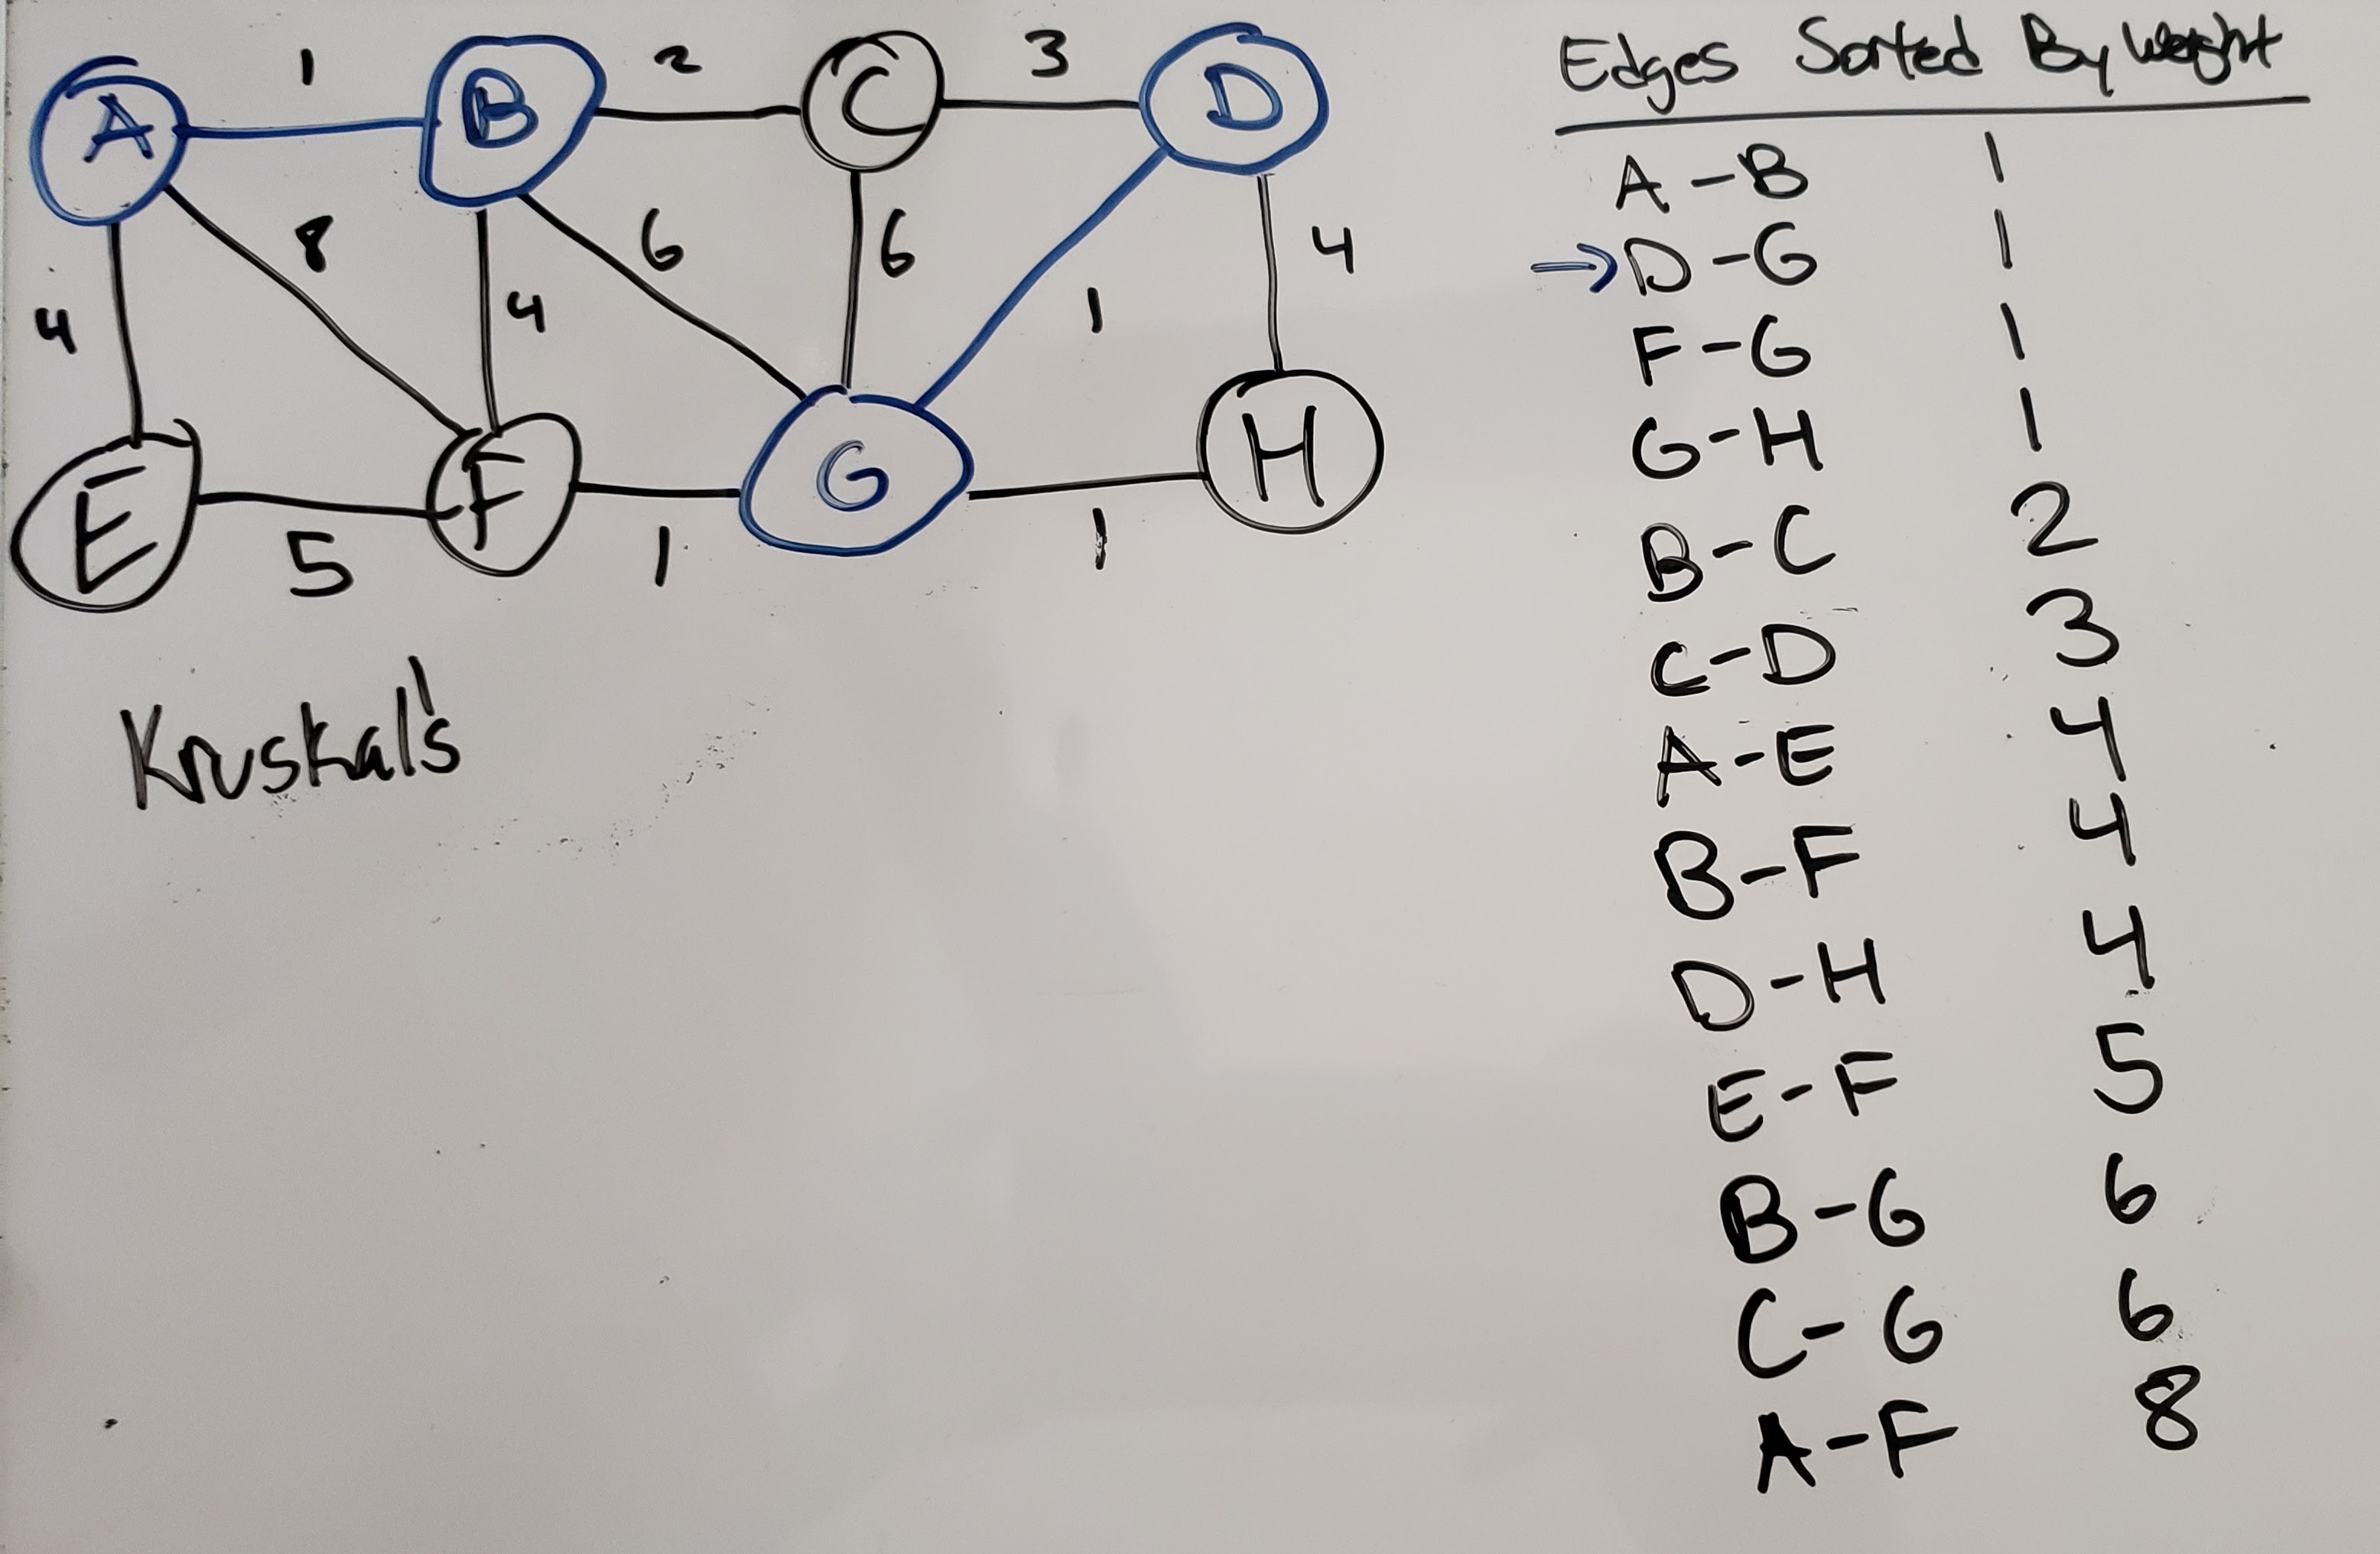 1 2 3
A B C D
8 6 6 4
4 4 1
E F G H
5 1 1
Kruskal's
Edges Sorted By Weight
A-B 1
→D-G 1
F-G 1
G-H 1
B-C 2
C-D 3
A-E 4
B-F 4
D-H 4
E-F 5
B-G 6
C-G 6
A-F 8